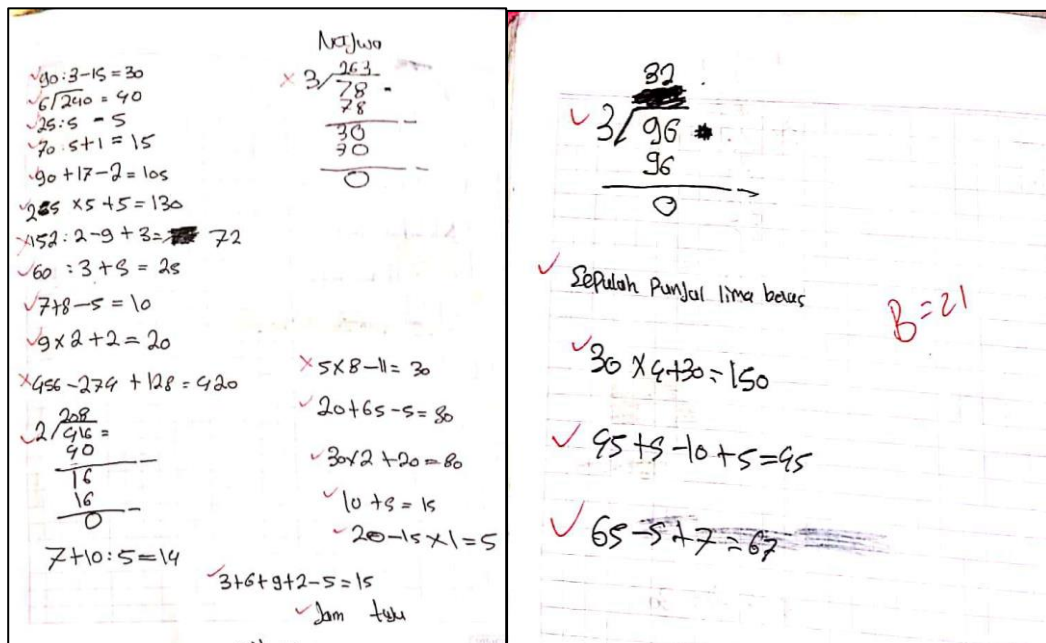 Najwa
90 : 3 - 15 = 30
6/240 = 40
25 : 5 = 5
70 : 5 + 1 = 15
90 + 17 - 2 = 105
25 x 5 + 5 = 130
152 : 2 - 9 + 3 = 72
60 : 3 + 5 = 25
7 + 8 - 5 = 10
9 x 2 + 2 = 20
456 - 274 + 128 = 420
208
2/416 =
40
16
16
0
7 + 10 : 5 = 14
263
3/78
78
30
30
0
5 x 8 - 11 = 30
20 + 65 - 5 = 80
30 x 2 + 20 = 80
10 + 5 = 15
20 - 15 x 1 = 5
3 + 6 + 9 + 2 - 5 = 15
Jam tuju
32
3/96
96
0
Sepuluh Punjul lima belas
B = 21
30 x 4 + 30 = 150
95 + 5 - 10 + 5 = 95
65 - 5 + 7 = 67